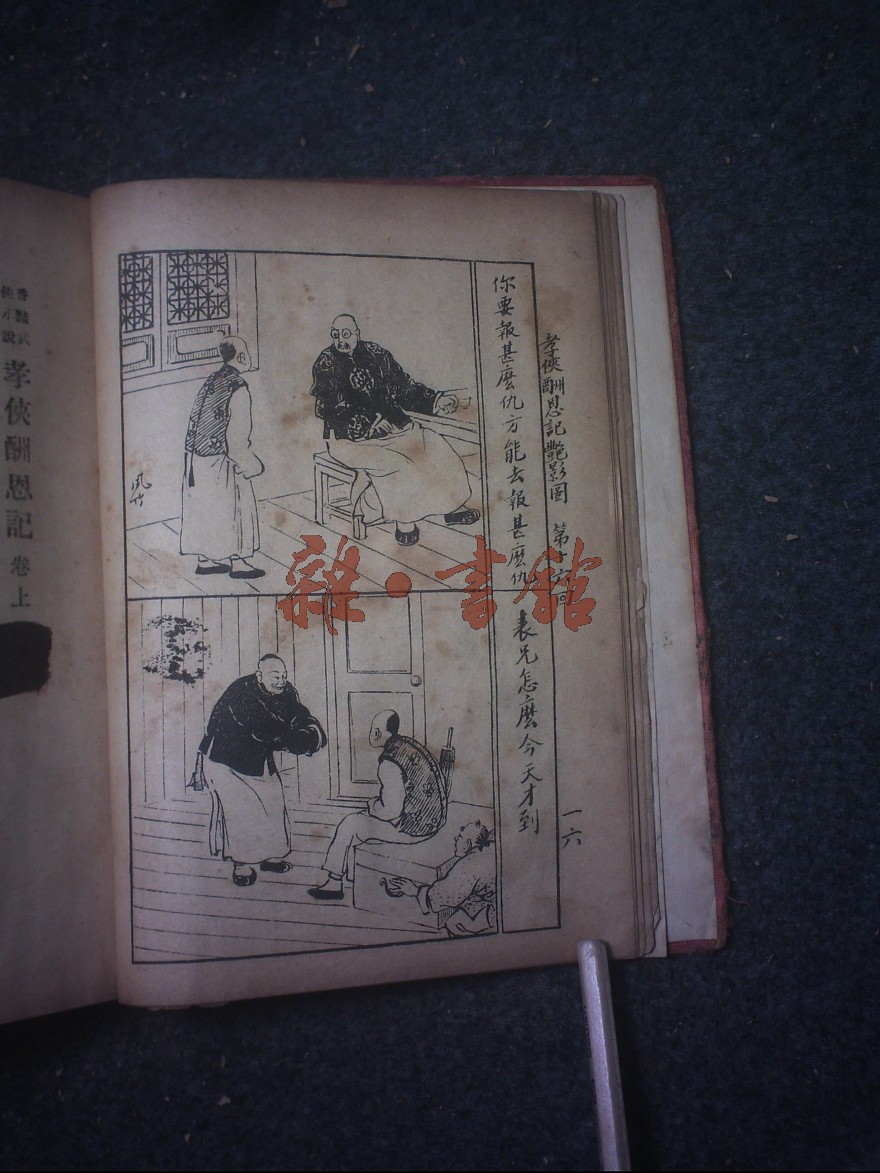 孝俠酬恩記艷影圖 第十六回 一六
你要報甚麽仇方能去報甚麽仇
表兄怎麽今天才到
風竹
雜·書館
香豔武
俠才說
孝俠酬恩記 卷上